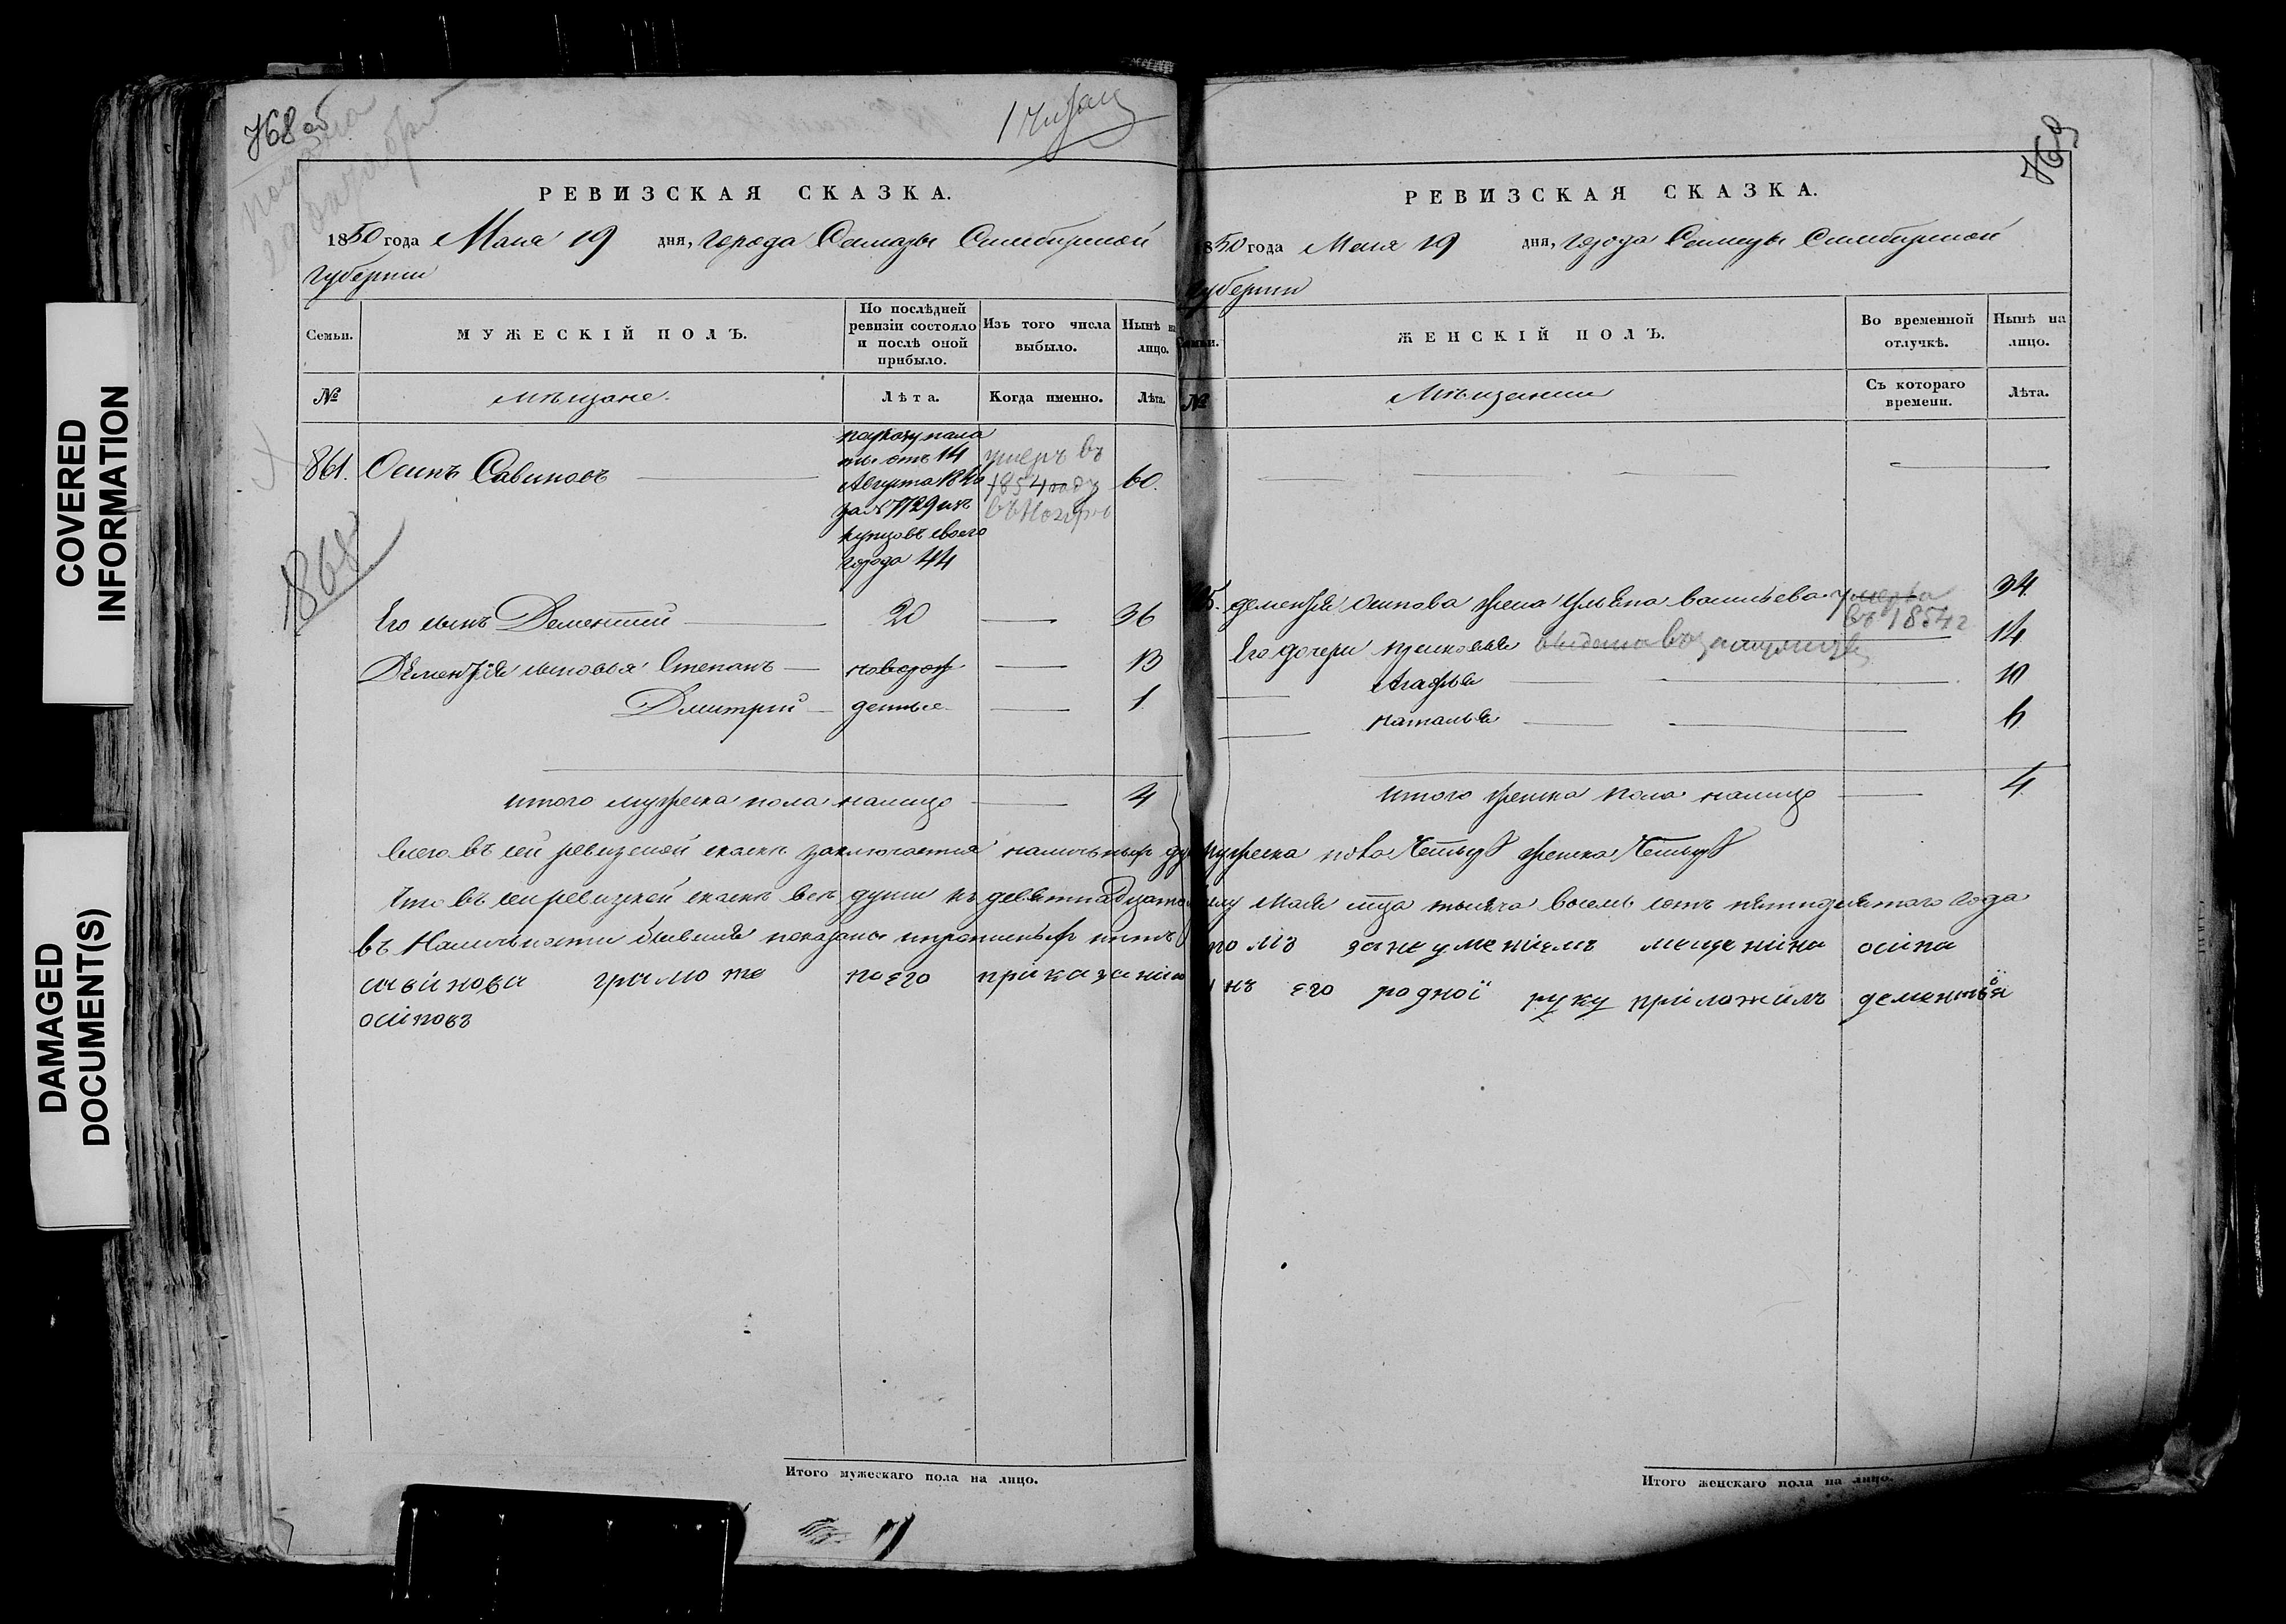 COVERED
INFORMATION
DAMAGED
DOCUMENT(S)
768 об
РЕВИЗСКАЯ СКАЗКА.
1850 года Маия 19 дня, города Самары Симбирской
губернии
Семьи.
МУЖЕСКІЙ ПОЛЪ.
По послѣдней
ревизіи состояло
и послѣ оной
прибыло.
Изъ того числа
выбыло.
Нынѣ на
лицо.
№
мѣщане.
Лѣта.
Когда именно.
Лѣта.
861. Осипъ Савиновъ
отъ 14
Августа
за № 7729 изъ
купцовъ своего
города 44
умеръ въ
1854 году
60.
1868
Его сынъ Дементий 20 36
Дементія сыновья Степанъ новорож 13
Дмитрий денные 1
итого мужеска пола налицо 4
РЕВИЗСКАЯ СКАЗКА.
1850 года Маия 19 дня, города Самары Симбирской
губернии
Семьи.
ЖЕНСКІЙ ПОЛЪ.
Во временной
отлучкѣ.
Нынѣ на
лицо.
№
Мѣщанки
Съ котораго
времени.
Лѣта.
Дементія Осипова жена Ульяна Васильева умерла 34
въ 1854 г
Его дочери 14
Агафья 10
Наталья 6
итого женска пола налицо 4
Всего въ сей ревизской сказкѣ заключается наличныхъ душъ мужеска пола четыре женска четыре
Что въ сей ревизской сказкѣ всѣ души къ девятнадцатому маия мца тысяча восемь сотъ пятидесятого года
въ наличности бывшия показаны и прописныхъ нѣтъ
осипа
савинова грамоте по его приказанию сынъ его родноï руку приложилъ дементеï
осиповъ
Итого мужескаго пола на лицо.
Итого женскаго пола на лицо.